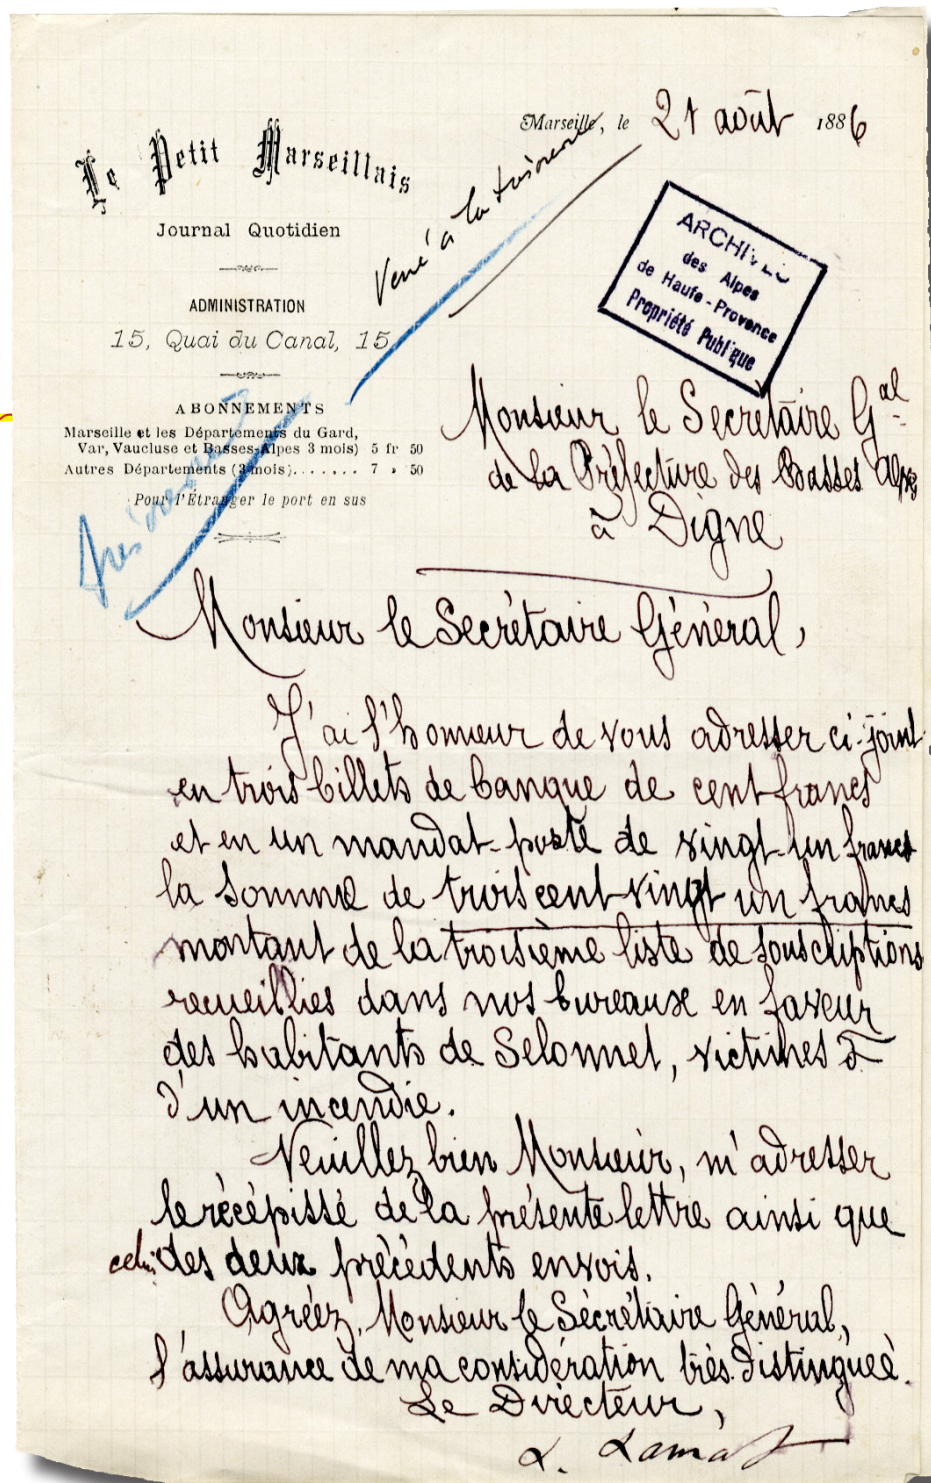 Le Petit Marseillais
Journal Quotidien
ADMINISTRATION
15, Quai du Canal, 15
ABONNEMENTS
Marseille et les Départements du Gard,
Var, Vaucluse et Basses-Alpes 3 mois) 5 fr 50
Autres Départements (3 mois)....... 7 » 50
Pour l'Étranger le port en sus
Marseille, le 21 août 1886
Versé à la trésorerie
ARCHIVES
des Alpes
de Haute-Provence
Propriété Publique
Monsieur le Secrétaire Gal
de la Préfecture des Basses Alpes
à Digne
Monsieur le Secrétaire Général,
J'ai l'honneur de vous adresser ci-joint
en trois billets de banque de cent francs
et en un mandat-poste de vingt-un francs
la somme de trois cent vingt un francs
montant de la troisième liste de souscriptions
recueillies dans nos bureaux en faveur
des habitants de Selonnet, victimes
d'un incendie.
Veuillez bien Monsieur, m'adresser
le récépissé de la présente lettre ainsi que
celui des deux précédents envois.
Agréez, Monsieur le Sécrétaire Général,
l'assurance de ma considération très distinguée.
Le Directeur,